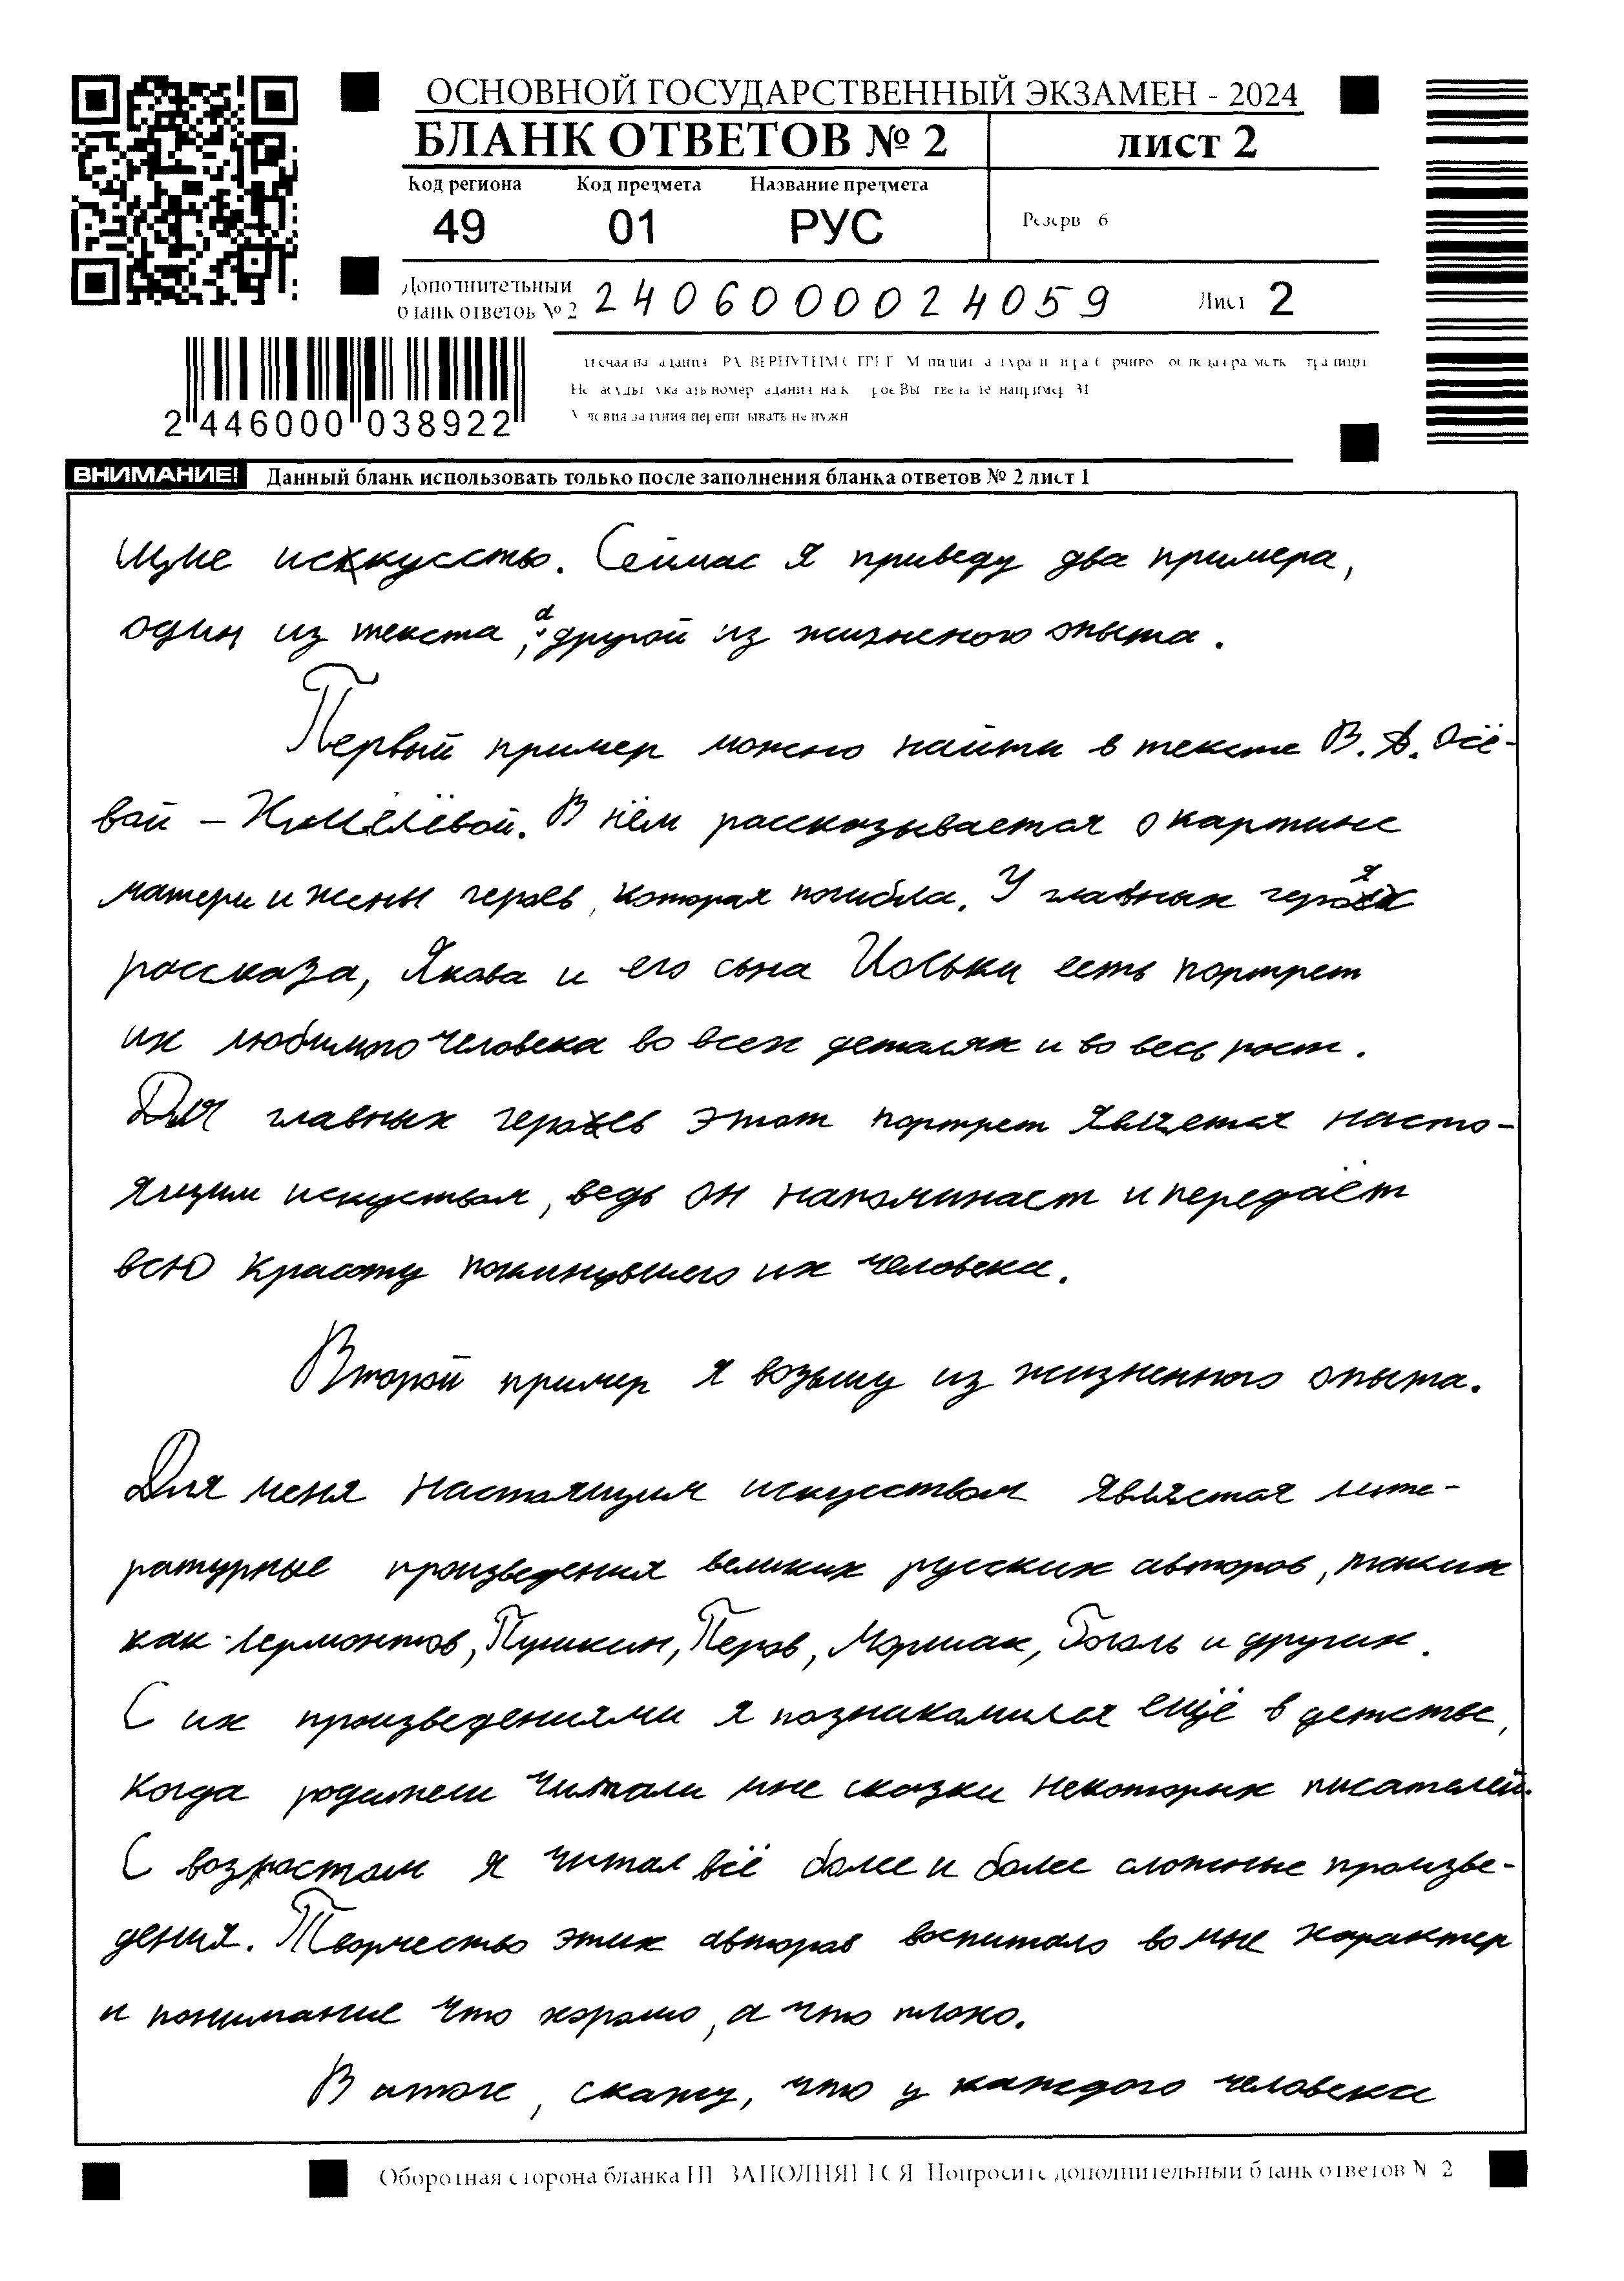 ОСНОВНОЙ ГОСУДАРСТВЕННЫЙ ЭКЗАМЕН - 2024
БЛАНК ОТВЕТОВ № 2 ЛИСТ 2
Код региона Код предмета Название предмета
49 01 РУС Резерв 6
Дополнительный
бланк ответов № 2 2406000024059 Лист 2
2 446000 038922
ВНИМАНИЕ! Данный бланк использовать только после заполнения бланка ответов № 2 лист 1
щие искусство. Сейчас я приведу два примера,
один из текста, а другой из жизненого опыта.
Первый пример можно найти в тексте В. А. Осе-
вой – Хмелёвой. В нём рассказывается о картине
матери и жены героев, которая погибла. У главных героях
рассказа, Якова и его сына Иоськи есть портрет
их любимого человека во всех деталях и во весь рост.
Для главных героев этот портрет является насто-
ящим искуством, ведь он напоминает и передаёт
всю красоту покинувшего их человека.
Второй пример я возьму из жизненного опыта.
Для меня настоящим искусством является лите-
ратурные произведения великих русских авторов, таких
как Лермонтов, Пушкин, Перов, Маршак, Гоголь и других.
С их произведениями я познакомился ещё в детстве,
когда родители читали мне сказки некоторых писателей.
С возрастом я читал всё более и более сложные произве-
дения. Творчество этих авторов воспитало во мне характер
и понимание что хорошо, а что плохо.
В итоге, скажу, что у каждого человека
Оборотная сторона бланка НЕ ЗАПОЛНЯЕТСЯ Попросите дополнительный бланк ответов № 2